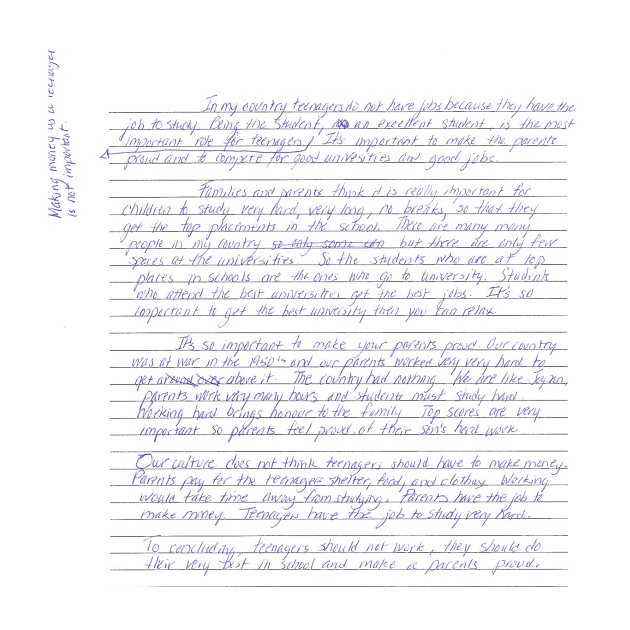 In my country teenagers do not have jobs because they have the
job to study. Being the student, an excellent student, is the most
important role for teenagers. It's important to make the parents
proud and to compete for good univesities and good jobs.
Making money as a teenager
is not important.
Families and parents think it is really important for
children to study very hard, very long, no breaks, so that they
get the top placements in the school. There are many many
people in my country so only some can but there are only few
spaces at the universities. So the students who are at top
places in schools are the ones who go to university. Students
who attend the best universities get the best jobs. It's so
important to get the best university then you can relax.
It's so important to make your parents proud. Our country
was at war in the 1950's and our parents worked very very hard to
get around over above it. The country had nothing. We are like
parents work very many hours and students must study hard.
Working hard brings honour to the family. Top scores are very
important so parents feel proud of their son's hard work.
Our culture does not think teenagers should have to make money.
Parents pay for the teenagers shelter, food, and clothing. Working
would take time away from studying. Parents have the job to
make money. Teenagers have the job to study very hard.
To concluding, teenagers should not work, they should do
their very best in school and make a parents proud.